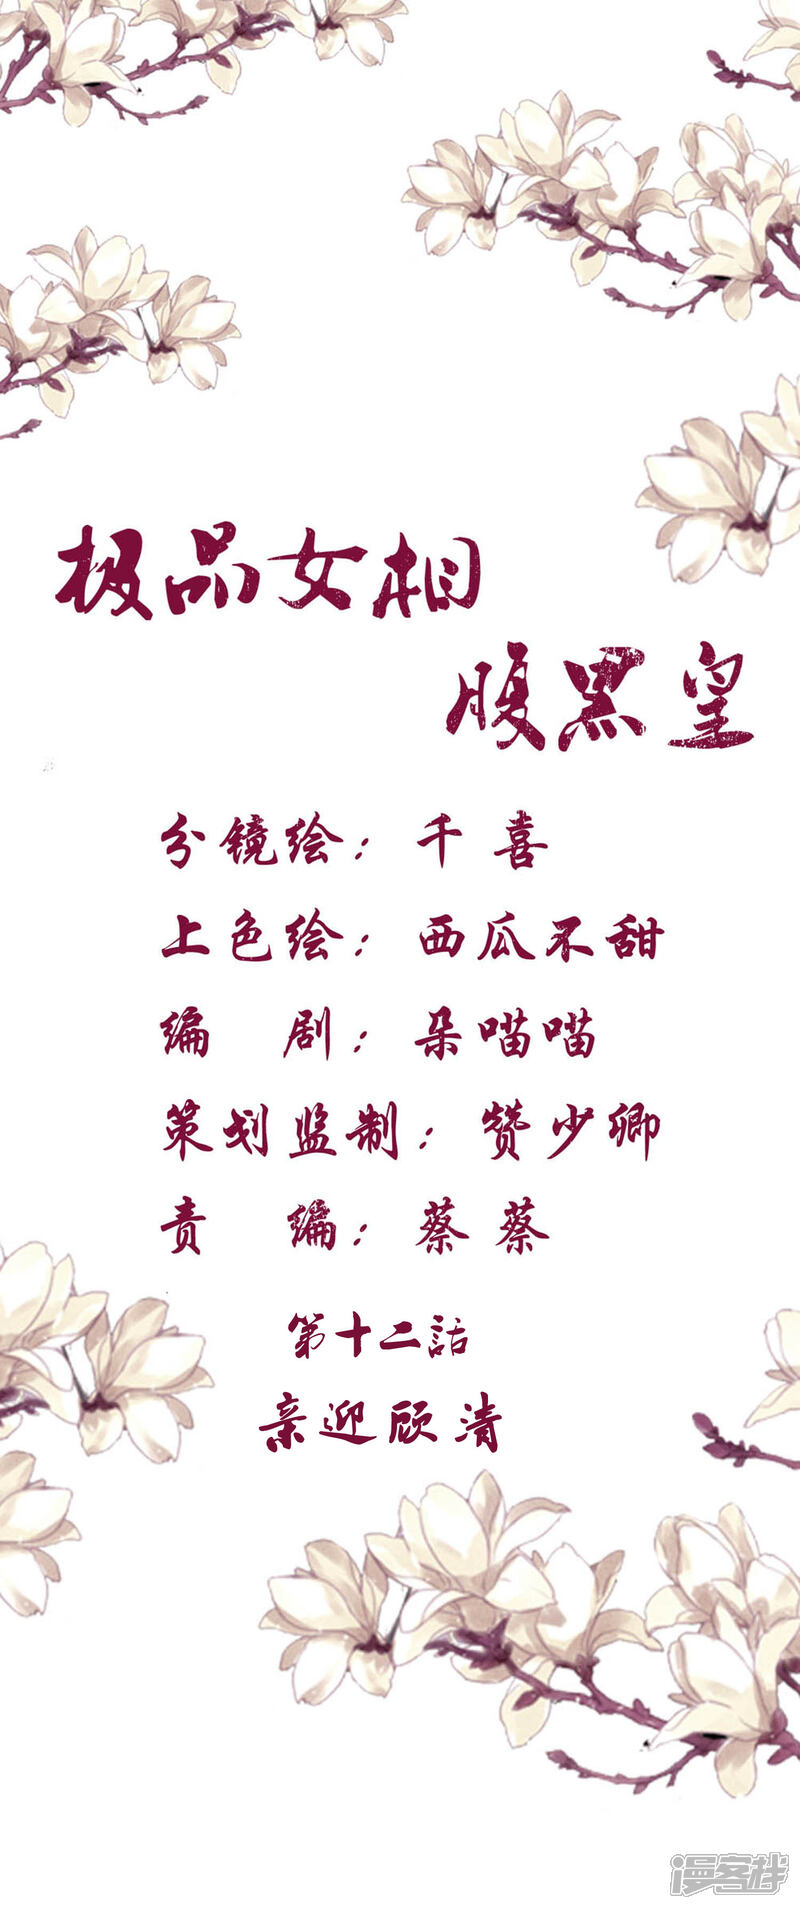 极品女相
腹黑皇
分镜绘：千喜
上色绘：西瓜不甜
编剧：朵喵喵
策划监制：赞少卿
责编：蔡蔡
第十二話
亲迎顾清
漫客栈